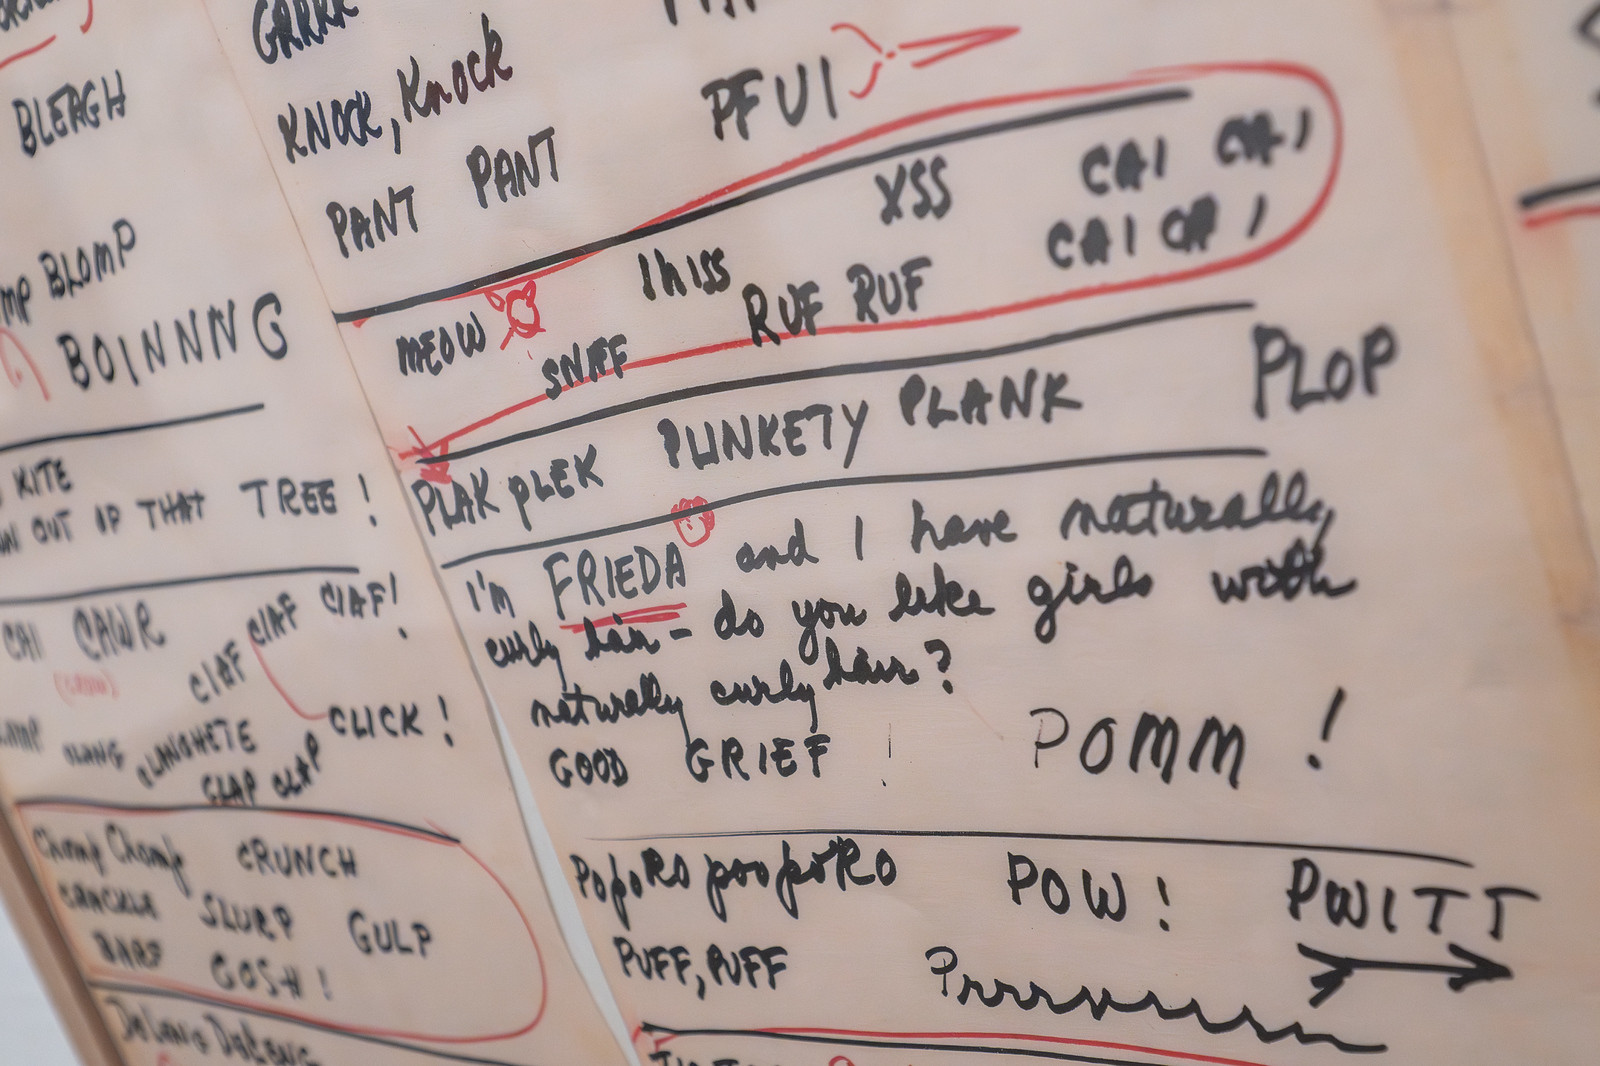 BLEAGH
BLOMP
BOINNNG
KITE
OUT OF THAT TREE!
CAI CAWR
CLAF CLAF CLAF!
CLANG CLANGHETE CLICK!
CLAP CLAP
Chomp Chomp CRUNCH
CRACKLE SLURP GULP
BARF GOSH!
GRRRR
KNOCK, Knock
PFUI
PANT PANT
XSS CAI CAI
MEOW hiss CAI CAI
SNIFF RUF RUF
PLAK PLEK PLUNKETY PLANK PLOP
I'm FRIEDA and I have naturally
curly hair - do you like girls with
naturally curly hair?
GOOD GRIEF! POMM!
PopoRo pooPoRO POW! PWITT
PUFF, PUFF Prrrrrrrrrr